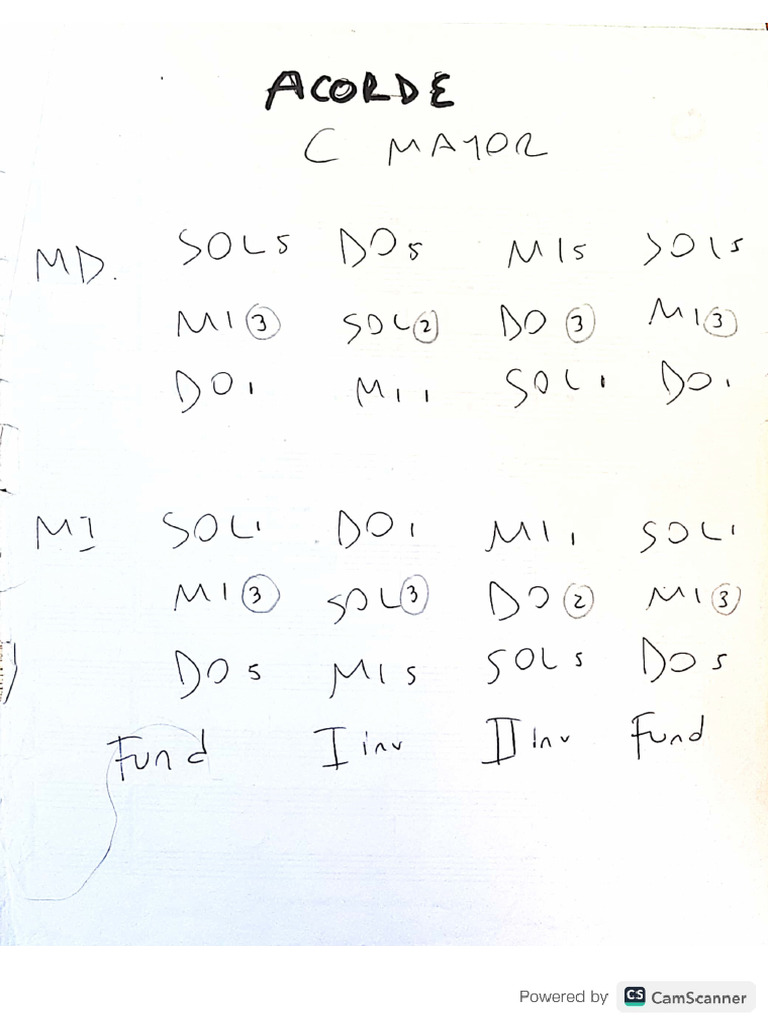 ACORDE
C MAYOR
MD. SOL5 DO5 MI5 SOL5
MI③ SOL② DO③ MI③
DO1 MI1 SOL1 DO1
MI SOL1 DO1 MI1 SOL1
MI③ SOL③ DO② MI③
DO5 MI5 SOL5 DO5
Fund I inv II inv Fund
Powered by CS CamScanner